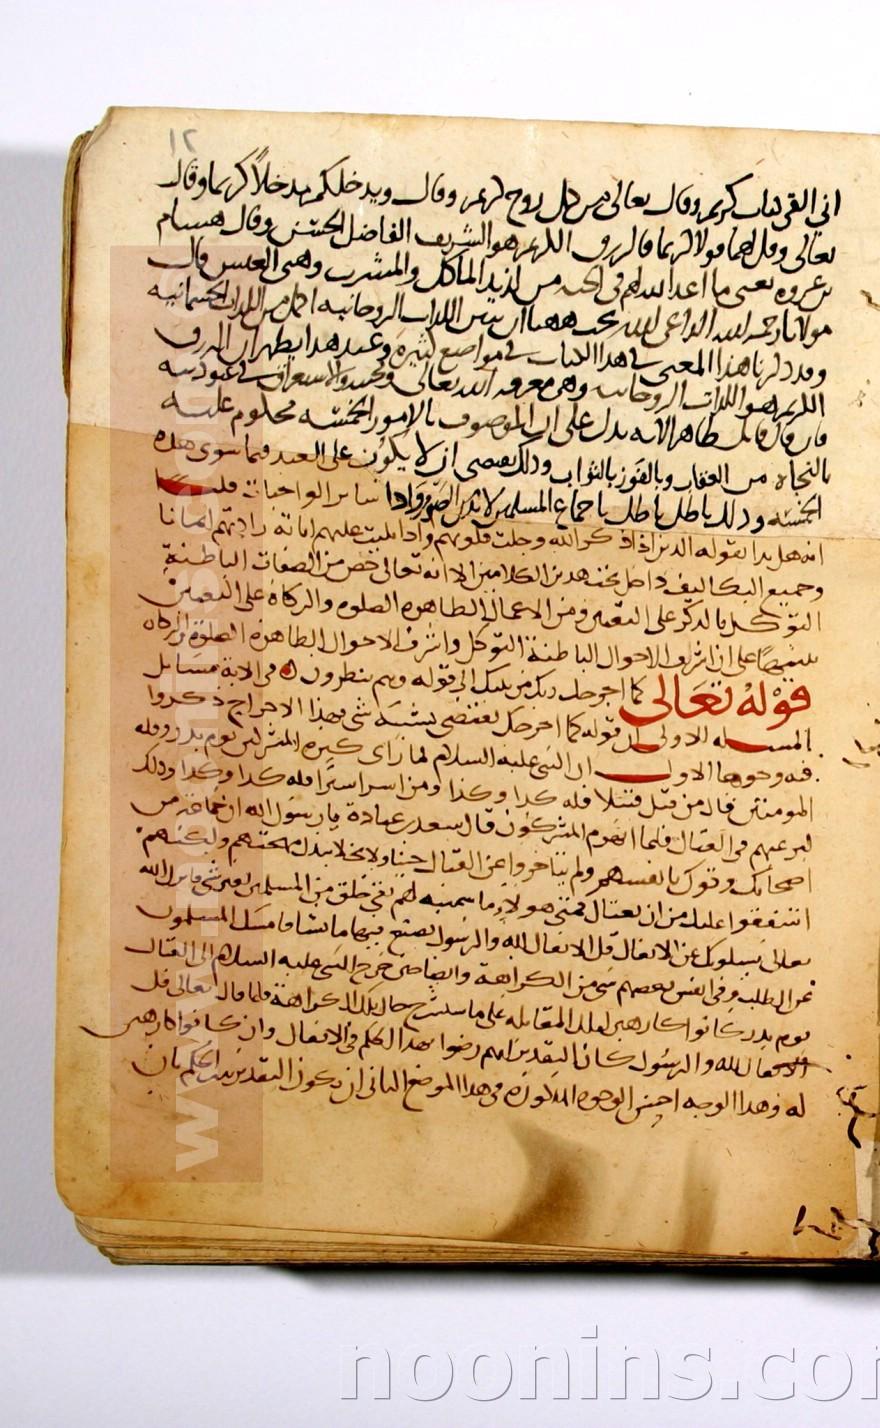 ١٢
اني القي كتاب كريم وقال تعالى من كل زوج كريم وقال ويدخلكم مدخلا كريما وقال
تعالى وقل لهما قولا كريما فالرزق الكريم هو الشريف الفاضل الحسن وقال هشام
بن عروة يعني ما اعد الله لهم في الجنة من لذيذ الماكل والمشرب وهني العيش قال
مولانا رحمه الله الداعي لله يجب ههنا ان يبين اللذات الروحانية اكمل من اللذات الجسمانية
وقد ذكرنا هذا المعنى في هذا الكتاب في مواضع كثيرة وعند هذا يظهر ان الرزق
الكريم هو اللذات الروحانية وهي معرفة الله تعالى ومحبته والاستغراق في عبوديته
فان قال قائل ظاهر الاية يدل على ان الموصوف بالامور الخمسة محكوم عليه
بالنجاة من العقاب وبالفوز بالثواب وذلك يقتضي ان لا يكون على العبد فيما سوى هذه
الخمسة وذلك باطل باطل باجماع المسلمين لانه من الصوم واداء سائر الواجبات قلنا
انه هل بدا بقوله الذين اذا ذكر الله وجلت قلوبهم واذا تليت عليهم اياته زادتهم ايمانا
وجميع التكاليف داخل تحت هذين الكلامين الا انه تعالى خص من الصفات الباطنة
التوكل بالذكر على التعيين ومن الاعمال الظاهرة الصلوة والزكاة على التعيين
تنبيها على ان اشرف الاحوال الباطنة التوكل واشرف الاحوال الظاهرة الصلوة والزكاة
قوله تعالى كما اخرجك ربك من بيتك الي قوله وهم ينظرون في الاية مسائل
المسئلة الاولى ان قوله كما اخرجك يقتضي تشبيه شي بهذا الاخراج ذكروا
فيه وجوها الاول ان النبي عليه السلام لما راى كثرة المشركين يوم بدر وقلة
المومنين قال من قتل قتيلا فله كذا وكذا ومن اسر اسيرا فله كذا وكذا وذلك
ليرغبهم في القتال فلما انهزم المشركون قال سعد بن عبادة يا رسول الله ان جماعة من
اصحابك وقوك بانفسهم ولم يتاخروا عن القتال جبنا ولا بخلا ببذل مهجتهم ولكنهم
اشفقوا عليك من ان تغتال فمتى هولاء ما سميته لهم بقي خلق من المسلمين بغير شي فانزل الله
تعالى يسلونك عن الانفال قل الانفال لله والرسول يصنع فيها ما يشا فامسك المسلمون
عن الطلب وفي انفس بعضهم شي من الكراهة وايضا حين خرج النبي عليه السلام الى القتال
يوم بدر كانوا كارهين لتلك المقاتلة على ما سنشرح حال تلك الكراهة فلما قال تعالى قل
الانفال لله والرسول كان التقدير انهم رضوا بهذا الحكم في الانفال وان كانوا كارهين
له وهذا الوجه احسن الوجوه المذكورة في هذا الموضع الثاني ان يكون التقدير ثبت الحكم بان
noonins.com